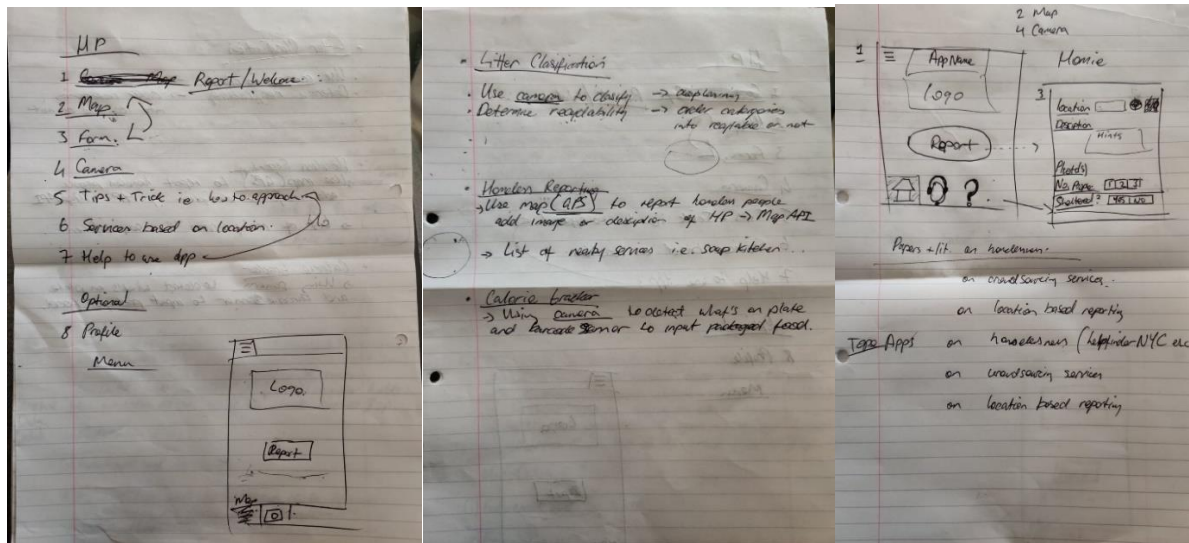 HP
1 Report/Welcome.
2 Map
3 Form.
4 Camera
5 Tips + Trick ie. how to approach
6 Services based on location.
7 Help to use app
Optional
8 Profile
Menu
Logo
Report
Map
• Litter Classification
• Use camera to classify → deeplearning
• Determine recyclability → order categories
into recyclable or not
• Homeless Reporting
→ Use map (GPS) to report homeless people
add image or description of HP → Map API
→ List of nearby services i.e. soup kitchen...
• Calorie tracker
→ Using camera to detect what's on plate
and barcode scanner to input packaged food.
2 Map
4 Camera
1
App Name
Logo
Report
?
Homie
3
Location
Description
Hints
Photo(s)
No. People 1 2 3
Sheltered? YES NO
Papers + lit. on homelessness.
on crowdsourcing services.
on location based reporting
Apps on homelessness (helpfinder NYC etc
on crowdsourcing services
on location based reporting